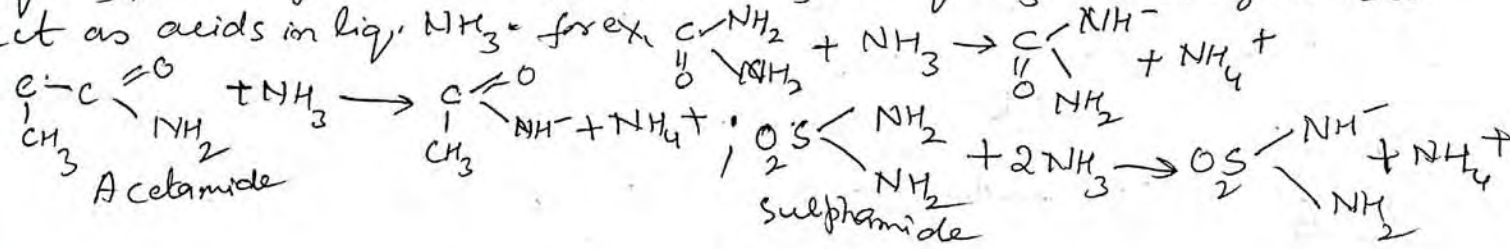 act as acids in liq. NH₃. for ex, C(=O)(NH₂)(NH₂) + NH₃ → C(=O)(NH⁻)(NH₂) + NH₄⁺
C-C(=O)(NH₂) CH₃ + NH₃ → C(=O)(NH⁻) CH₃ + NH₄⁺ ; O₂S(NH₂)(NH₂) + 2NH₃ → O₂S(NH⁻)(NH₂) + NH₄⁺
Acetamide sulphamide